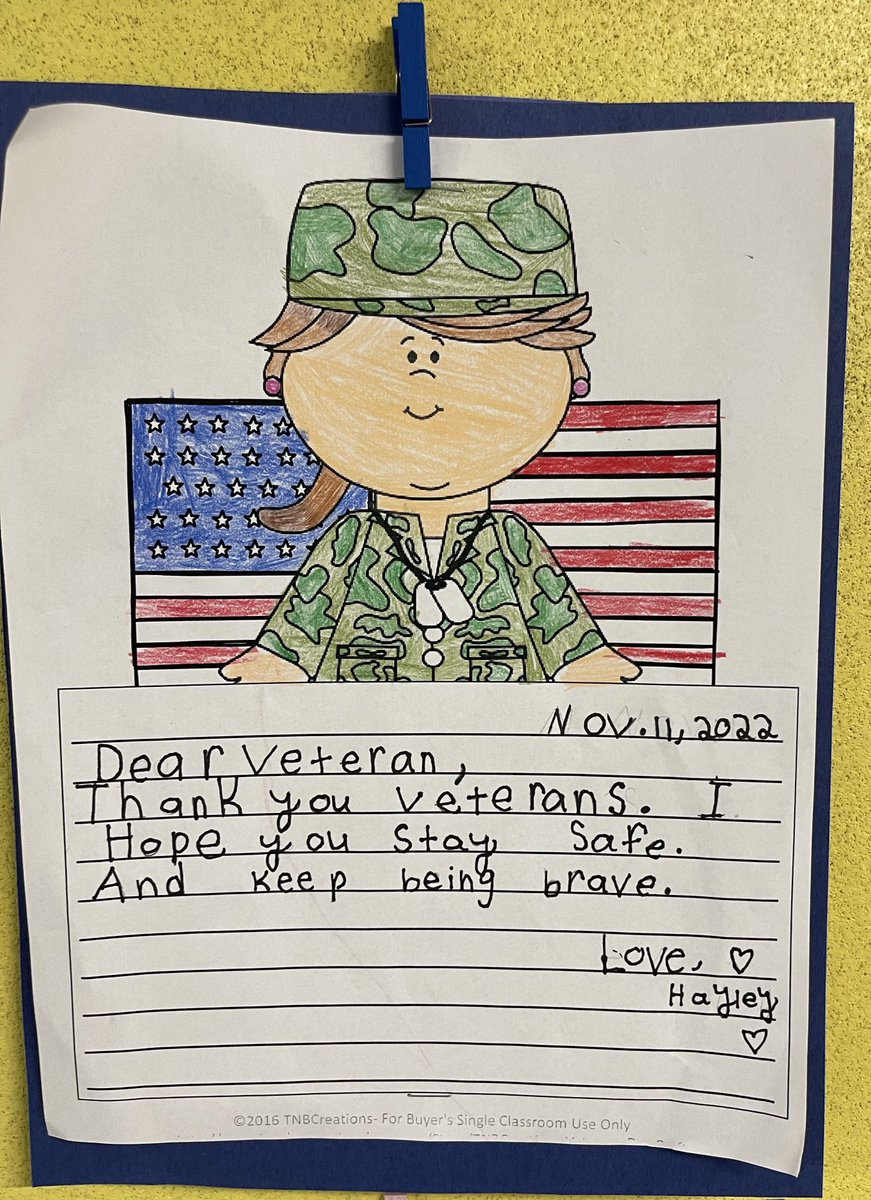 Nov. 11, 2022
Dear Veteran,
Thank you veterans. I
Hope you stay safe.
And keep being brave.
Love, ♡
Hayley
♡
©2016 TNBCreations- For Buyer's Single Classroom Use Only